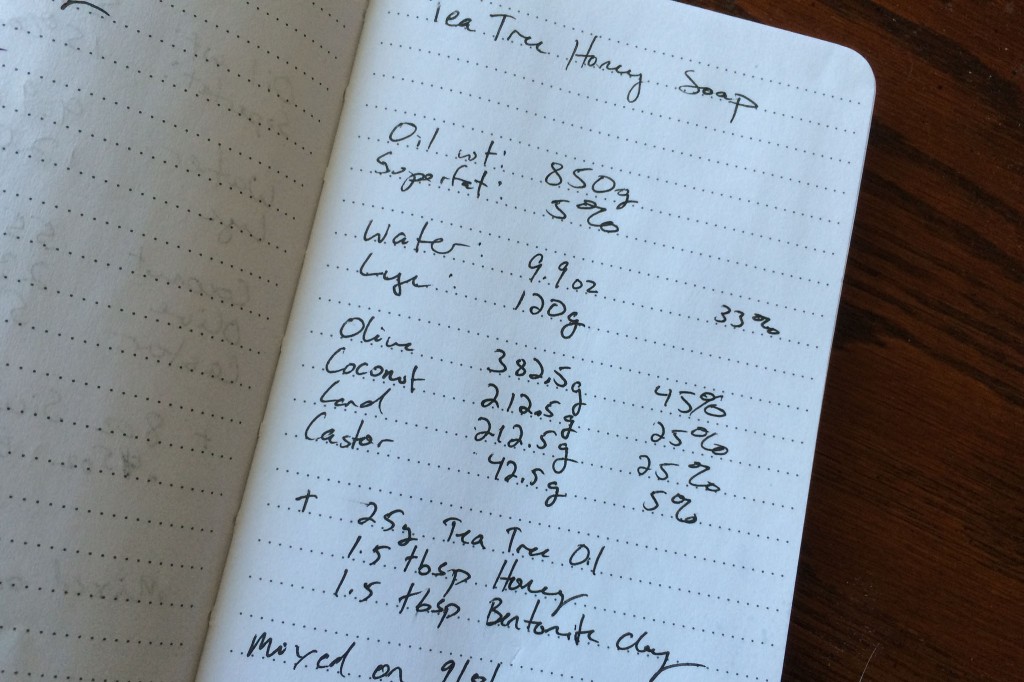 Tea Tree Honey Soap
Oil wt: 850g
Superfat: 5%
Water: 9.9oz 33%
Lye: 120g
Olive 382.5g 45%
Coconut 212.5g 25%
Lard 212.5g 25%
Castor 42.5g 5%
+ 25g Tea Tree Oil
1.5 tbsp Honey
1.5 tbsp Bentonite Clay
on